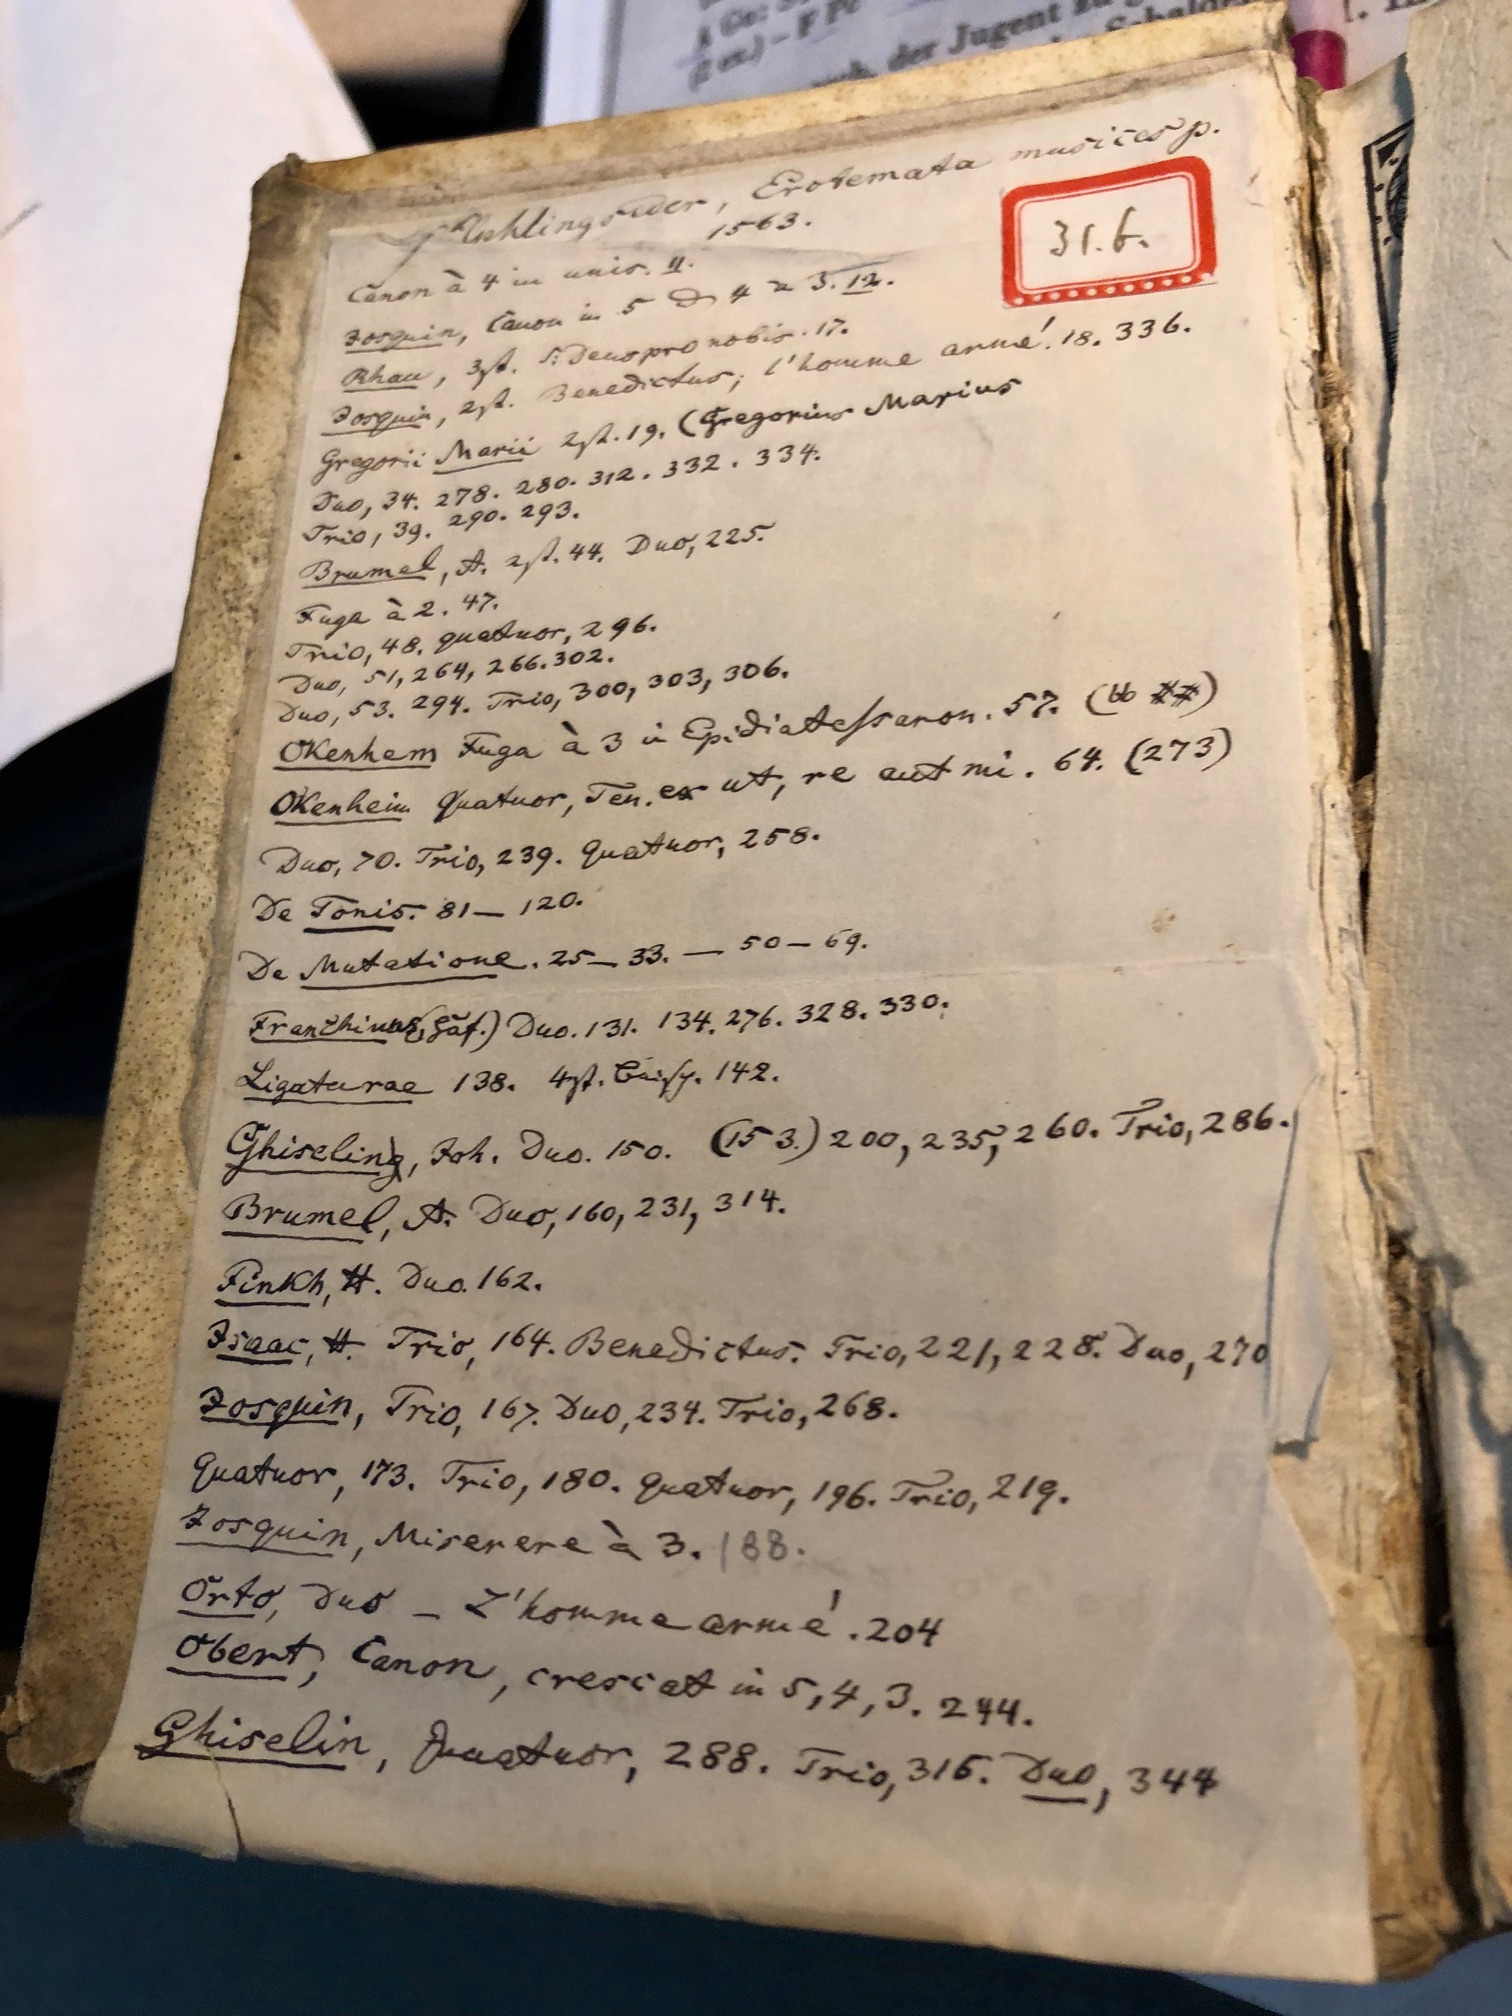 A Go:
(2 ex.) – F Pc
der Jugent zu
Erotemata musices p.
1563.
31.6.
Canon à 4 in unis. 11.
Josquin, Canon in 5 4 3. 12.
Rhau, 3st. Si Deus pro nobis. 17.
Josquin, 2st. Benedictus; l'homme armé. 18. 336.
Gregorii Marii 2st. 19. (Gregorius Marius
Duo, 34. 278. 280. 312. 332. 334.
Trio, 39. 290. 293.
Brumel, A. 2st. 44. Duo, 225.
Fuga à 2. 47.
Trio, 48. quatuor, 296.
Duo, 51, 264, 266. 302.
Duo, 53. 294. Trio, 300, 303, 306.
Okenhem Fuga à 3 in Epidiatessaron. 57. (bb ##)
Okenheim Quatuor, Ten. ex ut, re aut mi. 64. (273)
Duo, 70. Trio, 239. quatuor, 258.
De Tonis. 81 – 120.
De Mutatione. 25 – 33. — 50 – 69.
Franchinus (Gaf.) Duo. 131. 134. 276. 328. 330.
Ligaturae 138. 4st. 142.
Ghiseling, Joh. Duo. 150. (153.) 200, 235, 260. Trio, 286.
Brumel, A. Duo, 160, 231, 314.
Finkh, H. Duo. 162.
Isaac, H. Trio, 164. Benedictus. Trio, 221, 228. Duo, 270
Josquin, Trio, 167. Duo, 234. Trio, 268.
Quatuor, 173. Trio, 180. quatuor, 196. Trio, 219.
Josquin, Miserere à 3. 188.
Orto, Duo – L'homme armé. 204
Obert, Canon, crescat in 5, 4, 3. 244.
Ghiselin, Quatuor, 288. Trio, 316. Duo, 344